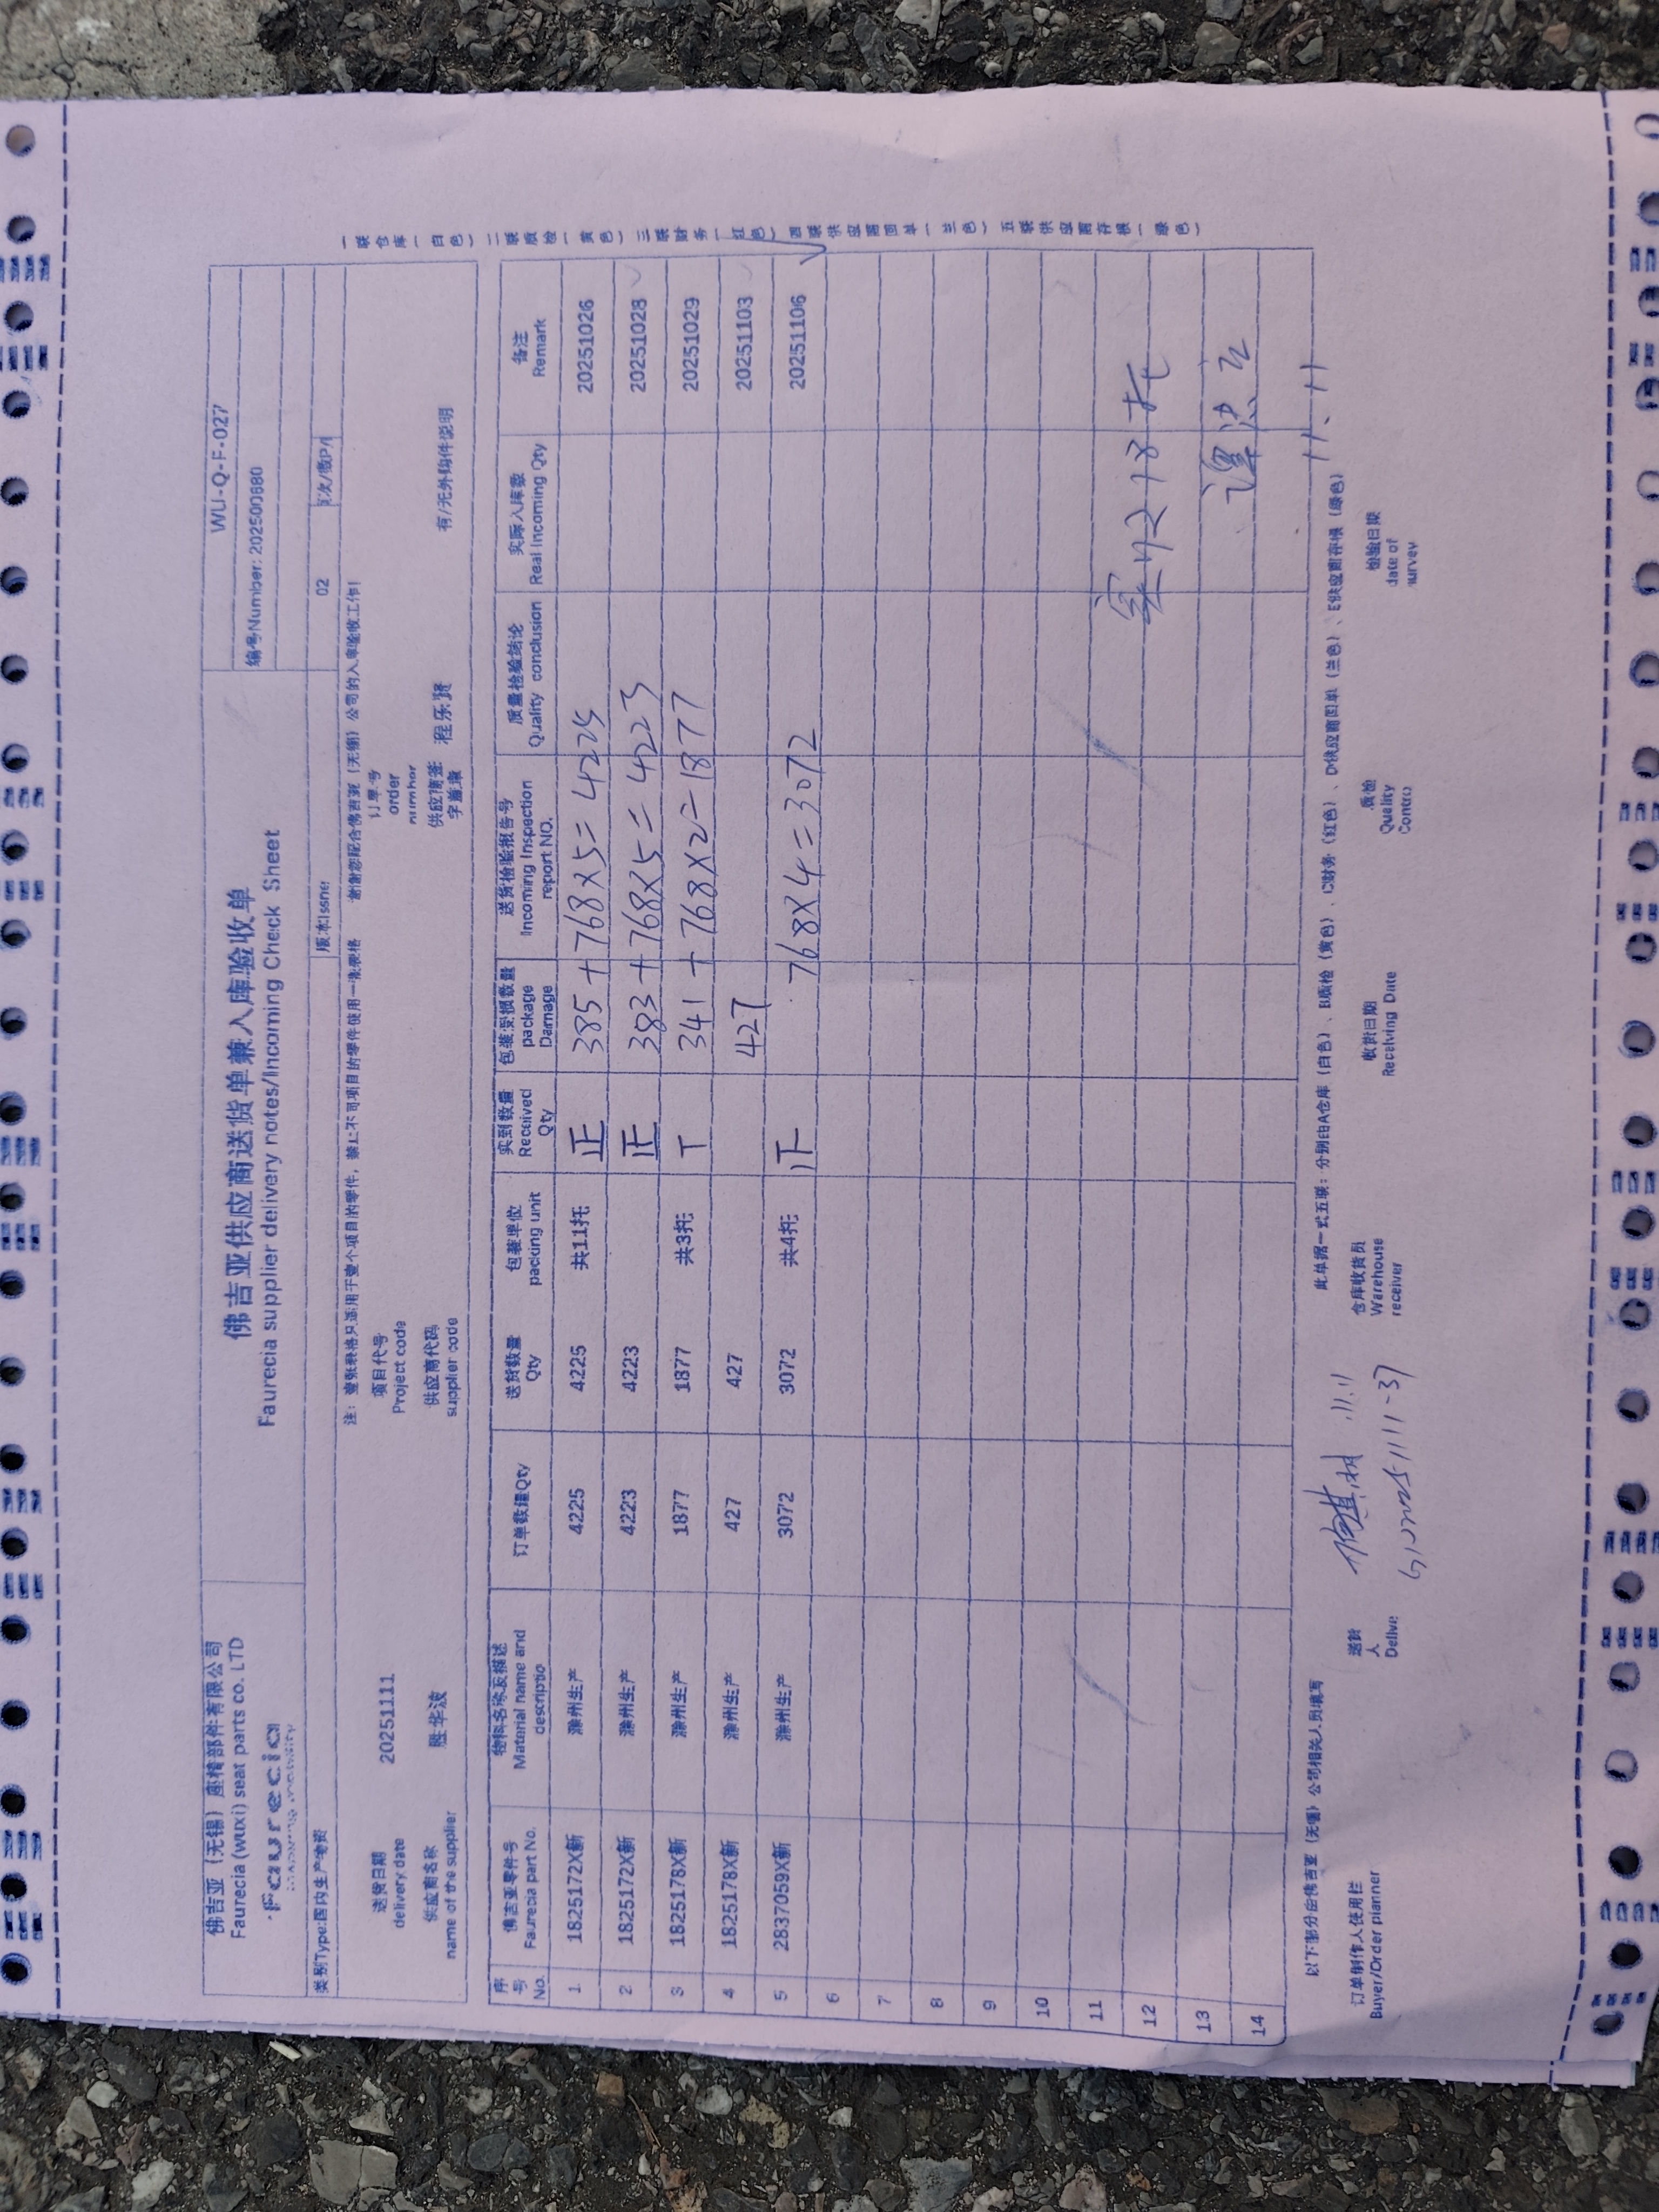 佛吉亚（无锡）座椅部件有限公司
Faurecia (wuxi) seat parts co. LTD
faurecia
佛吉亚供应商送货单兼入库验收单
Faurecia supplier delivery notes/Incoming Check Sheet
WU-Q-F-027
编号Number: 202500880
类别Type:国内生产物资 版本Issne 02
注：壹张表格只适用于壹个项目的零件，禁止不同项目的零件使用一张表格 谢谢您配合佛吉亚（无锡）公司的入库验收工作！
送货日期 20251111 项目代号 订单号
delivery date Project code order number
供应商名称 胜华波 供应商代码 供应商签字盖章 程乐贤 有/无外购件说明
name of the supplier supplier code
序号 No. 佛吉亚零件号 Faurecia part No. 物料名称及描述 Material name and descriptio 订单数量Qty 送货数量 Qty 包装单位 packing unit 实到数量 Received Qty 包装受损数量 package Damage 送货检验报告号 Incoming Inspection report NO. 质量检验结论 Quality conclusion 实际入库数 Real Incoming Qty 备注 Remark
1 1825172X新 滁州生产 4225 4225 共11托 正 385+768X5=4225 20251026
2 1825172X新 滁州生产 4223 4223 正 383+768X5=4223 20251028
3 1825178X新 滁州生产 1877 1877 共3托 T 341+768X2=1877 20251029
4 1825178X新 滁州生产 427 427 427 20251103
5 2837059X新 滁州生产 3072 3072 共4托 768X4=3072 20251106
6
7
8
9
10
11
12 实收18托
13
14
11.11
以下部分由佛吉亚（无锡）公司相关人员填写 此单据一式五联：分别由A仓库（白色）、B质检（黄色）、C财务（红色）、D供应商回单（兰色）、E供应商存根（绿色）
订单制作人使用栏 送货人 11.11 仓库收货员 收货日期 质检 检验日期
Buyer/Order planner Delive Warehouse receiver Receiving Date Quality Contro date of survey
一联仓库（白色）二联质检（黄色）三联财务（红色）四联供应商回单（兰色）五联供应商存根（绿色）